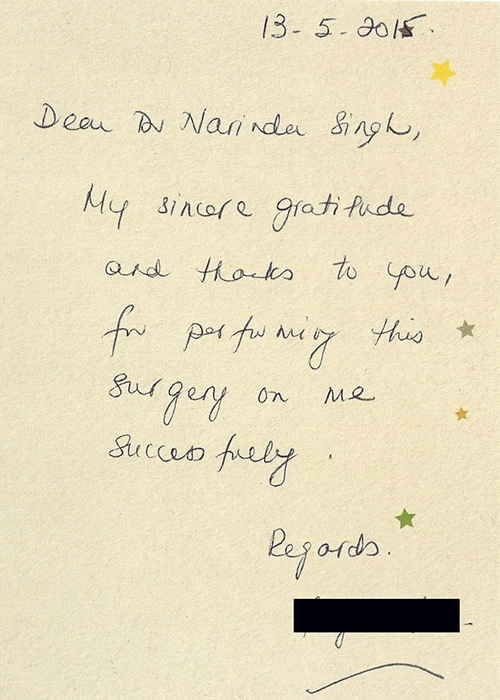 13-5-2015.
Dear Dr Narinder Singh,
My sincere gratitude
and thanks to you,
for performing this
surgery on me
successfully.
Regards.